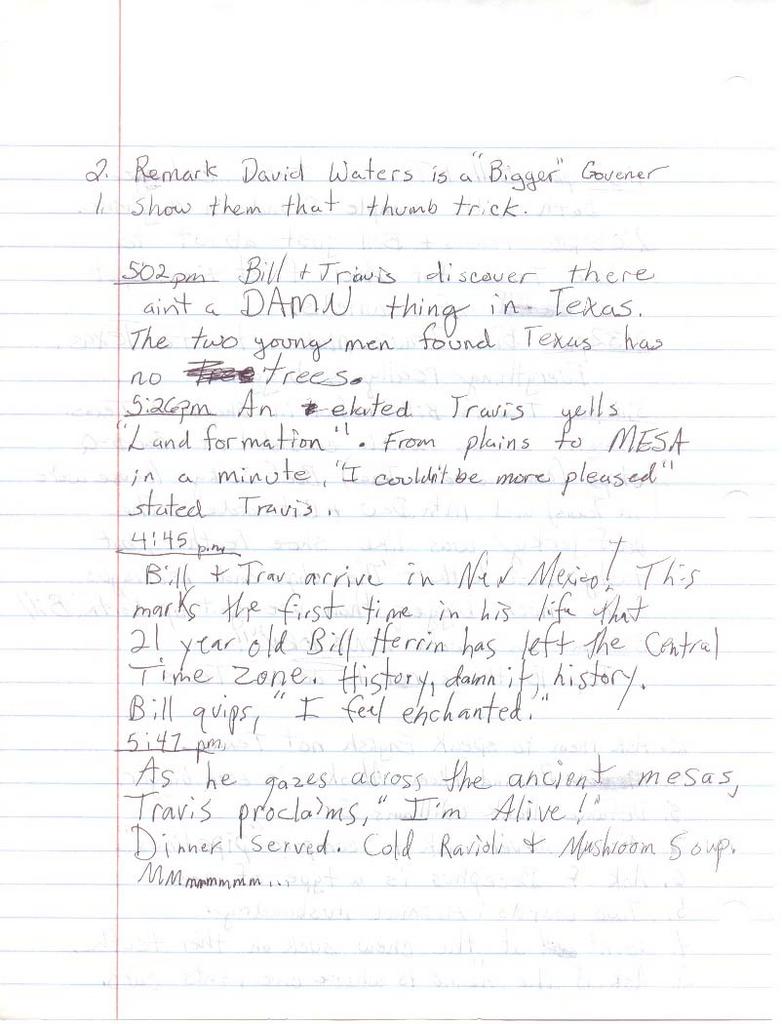 2. Remark David Waters is a "Bigger" Govener
1. Show them that thumb trick.
5:02pm Bill + Travis discover there
aint a DAMN thing in Texas.
The two young men found Texas has
no trees.
5:26pm An elated Travis yells
"Land formation"! From plains to MESA
in a minute, "I couldn't be more pleased"
stated Travis.
4:45 p.m.
Bill + Trav arrive in New Mexico! This
marks the first time in his life that
21 year old Bill Herrin has left the Central
Time Zone. History, damn it, history.
Bill quips, "I feel enchanted."
5:47 pm,
As he gazes across the ancient mesas,
Travis proclaims, "I'm Alive!"
Dinner served. Cold Ravioli + Mushroom Soup.
MMmmmmmm...